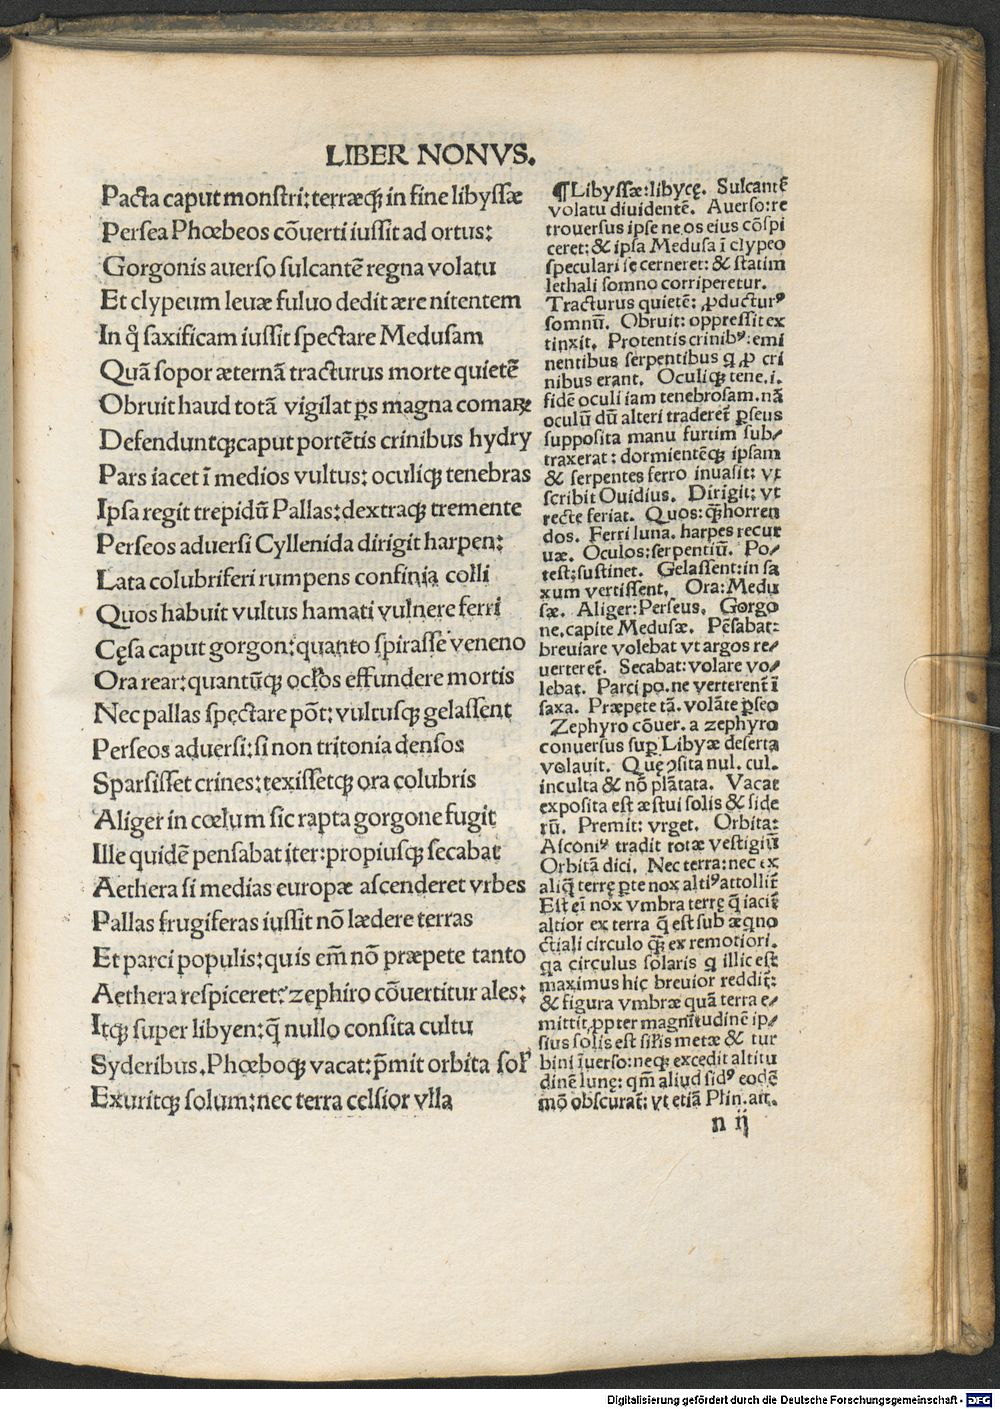 LIBER NONVS.
Pacta caput monstri: terræq; in fine libyssæ
Persea Phœbeos cōuerti iussit ad ortus:
Gorgonis auerso sulcantē regna volatu
Et clypeum leuæ fuluo dedit ære nitentem
In q̊ saxificam iussit spectare Medusam
Quā sopor æternā tracturus morte quietē
Obruit haud totā vigilat ꝑs magna comaꝝ
Defenduntq; caput portētis crinibus hydry
Pars iacet ī medios vultus: oculiq; tenebras
Ipsa regit trepidū Pallas: dextraq; tremente
Perseos aduersi Cyllenida dirigit harpen:
Lata colubriferi rumpens confinia colli
Quos habuit vultus hamati vulnere ferri
Cęsa caput gorgon: quanto spirasse veneno
Ora rear: quantūq; oclōs effundere mortis
Nec pallas spectare pōt: vultusq; gelassent
Perseos aduersi: si non tritonia densos
Sparsisset crines: texissetq; ora colubris
Aliger in cœlum sic rapta gorgone fugit
Ille quidē pensabat iter: propiusq; secabat
Aethera si medias europæ ascenderet vrbes
Pallas frugiferas iussit nō lædere terras
Et parci populis: quis em̄ nō præpete tanto
Aethera respiceret? zephiro cōuertitur ales:
Itq; super libyen: q̄ nullo consita cultu
Syderibus. Phœboq; vacat: p̄mit orbita sol'
Exuritq; solum: nec terra celsior vlla
¶ Libyssæ: libycę. Sulcantē
volatu diuidentē. Auerso: re
trouersus ipse ne os eius cōspi
ceret: & ipsa Medusa ī clypeo
speculari se cerneret: & statim
lethali somno corriperetur.
Tracturus quietē: ꝓductur⁹
somnū. Obruit: oppressit ex
tinxit. Protentis crinib⁹: emi
nentibus serpentibus q ꝓ cri
nibus erant. Oculiq; tene. i.
fidē oculi iam tenebrosam. nā
oculū dū alteri traderēt ꝑseus
supposita manu furtim sub/
traxerat: dormientēq; ipsam
& serpentes ferro inuasit: vt
scribit Ouidius. Dirigit: vt
recte feriat. Quos: q̄; horren
dos. Ferri luna. harpes recur
uæ. Oculos: serpentiū. Po/
test: sustinet. Gelassent: in sa
xum vertissent. Ora: Medu
sæ. Aliger: Perseus. Gorgo
ne. capite Medusæ. Pēsabat:
breuiare volebat vt argos re/
uerteret̄. Secabat: volare vo/
lebat. Parci po. ne verterent̄ ī
saxa. Præpete tā. volāte ꝑseo
Zephyro cōuer. a zephyro
conuersus suꝑ Libyæ deserta
volauit. Quę ɔsita nul. cul.
inculta & nō plātata. Vacat
exposita est æstui solis & side
rū. Premit: vrget. Orbita:
Asconi⁹ tradit rotæ vestigiū
Orbitā dici. Nec terra: nec ex
aliq̄ terrę ꝑte nox alti⁹ attollit̄
Est eī nox vmbra terrę q̄ iacit̄
altior ex terra q̄ est sub æqno
ctiali circulo q̄; ex remotiori.
qa circulus solaris q illic est
maximus hic breuior reddit̄:
& figura vmbræ quā terra e/
mittit ꝓpter magnitudinē ip/
sius solis est sil̄is metæ & tur
bini īuerso: neq; excedit altitu
dinē lunę: qm̄ aliud sid⁹ eodē
mō obscurat̄: vt etiā Plin. ait.
n ij
Digitalisierung gefördert durch die Deutsche Forschungsgemeinschaft - DFG